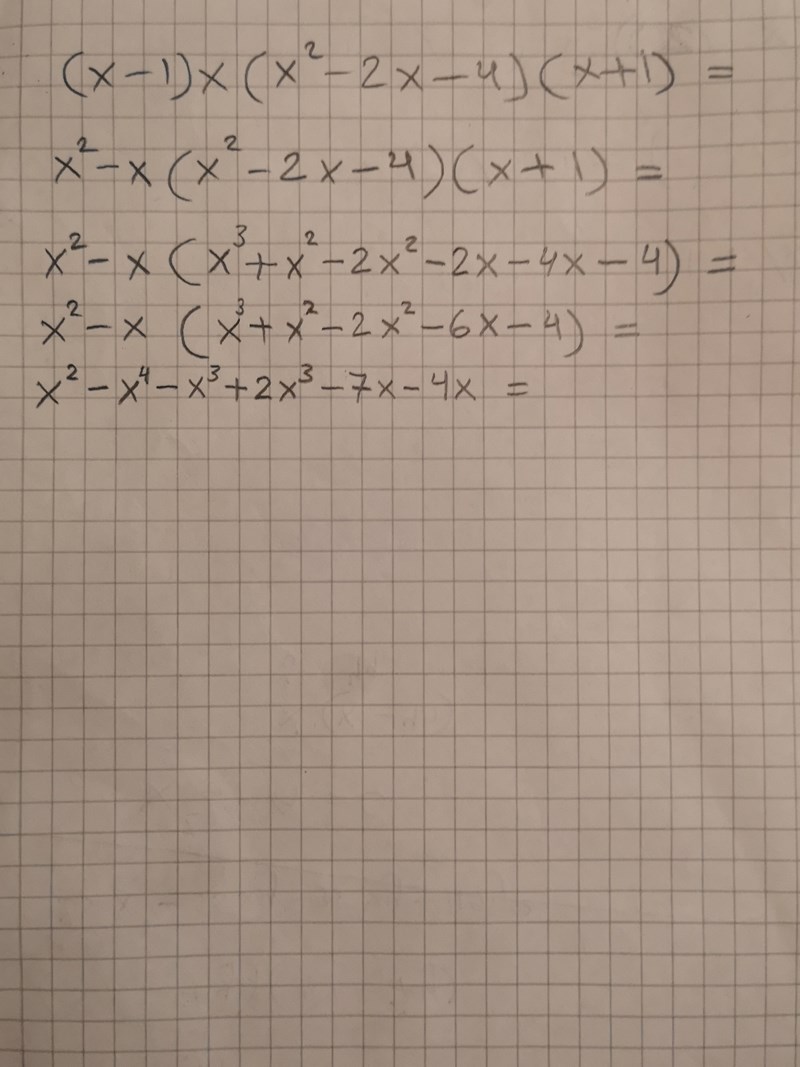 (x-1)x(x²-2x-4)(x+1)=
x²-x(x²-2x-4)(x+1)=
x²-x(x³+x²-2x²-2x-4x-4)=
x²-x(x³+x²-2x²-6x-4)=
x²-x⁴-x³+2x³-7x-4x=